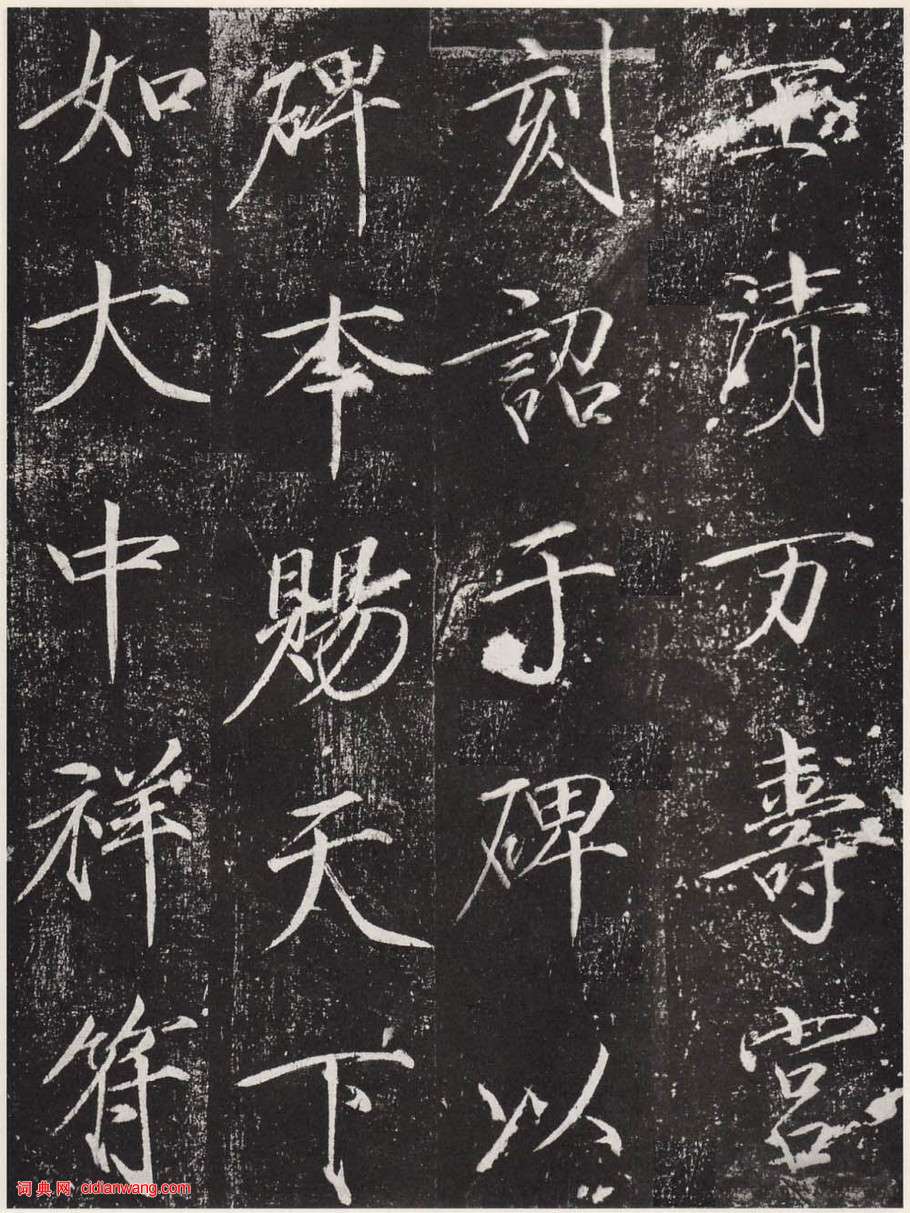 玉清万壽宮
刻詔于碑以
碑本賜天下
如大中祥符
词典网 cidianwang.com